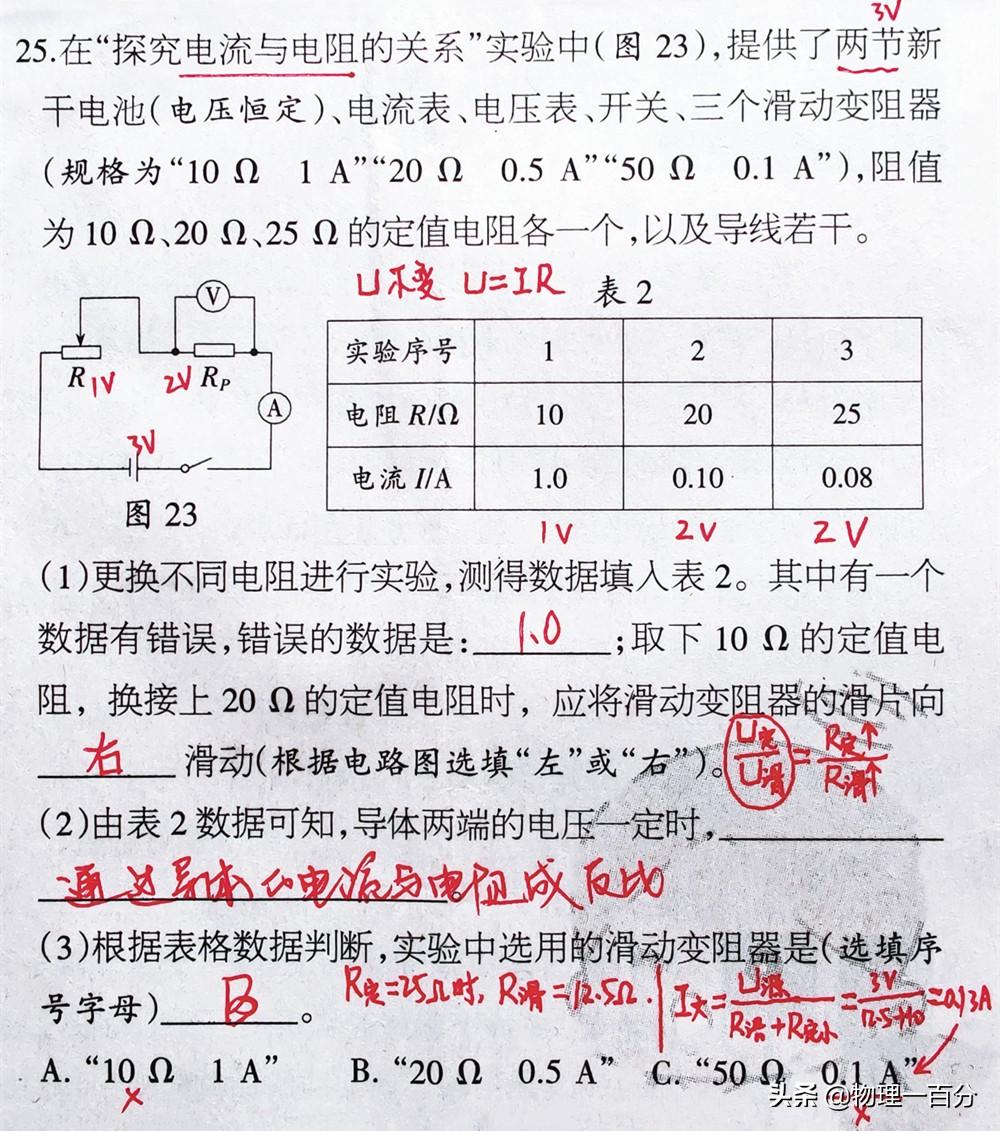 3V
25.在“探究电流与电阻的关系”实验中(图 23),提供了两节新
干电池(电压恒定)、电流表、电压表、开关、三个滑动变阻器
(规格为“10 Ω 1 A”“20 Ω 0.5 A”“50 Ω 0.1 A”),阻值
为 10 Ω、20 Ω、25 Ω 的定值电阻各一个,以及导线若干。
U不变 U=IR 表 2
V
R 1V 2V RP
A
3V
图 23
实验序号 1 2 3
电阻 R/Ω 10 20 25
电流 I/A 1.0 0.10 0.08
1V 2V 2V
(1)更换不同电阻进行实验,测得数据填入表 2。其中有一个
数据有错误,错误的数据是: 1.0 ;取下 10 Ω 的定值电
阻，换接上 20 Ω 的定值电阻时，应将滑动变阻器的滑片向
右 滑动(根据电路图选填“左”或“右”)。
U定/U滑=R定↑/R滑↑
(2)由表 2 数据可知,导体两端的电压一定时,
通过导体的电流与电阻成反比。
(3)根据表格数据判断,实验中选用的滑动变阻器是(选填序
号字母) B 。
R定=25Ω时, R滑=12.5Ω.
I大=U源/(R滑+R定小)=3V/(12.5+10)=0.13A
A. “10 Ω 1 A” B. “20 Ω 0.5 A” C. “50 Ω 0.1 A”
× ×
头条 @物理一百分